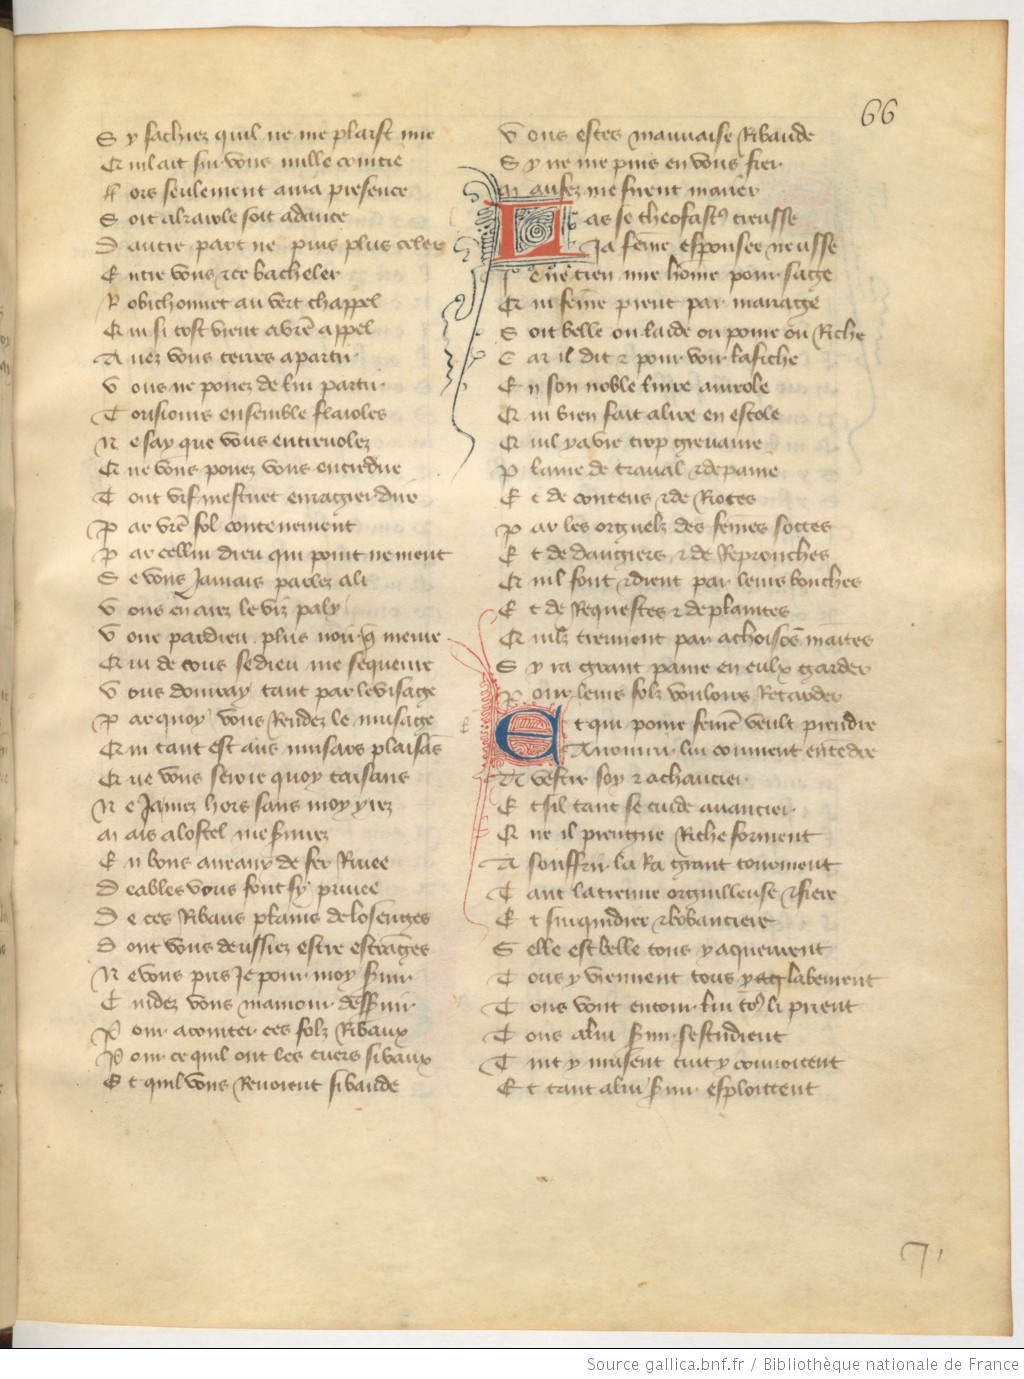 66
S y sachiez quil ne me plaist mie
Et nul ait sur vous nulle
F ors seulement en ma presence
S oit a karole soit a dance
D autre part ne puis plus celer
E ntre vous et ce bacheler
R obichonnet au vert chappel
Et qui si tost vient a vrē appel
A vez vous terres a partir
V ous ne povez de lui partir
T ousiours ensemble flaioles
N e say que vous entrevolez
Et que vous povez vous entredire
T out vif mestuet enragier dire
P ar vrē fol contenement
P ar cellui dieu qui point ne ment
S e vous Jamais parlez a li
V ous en airez le viz paly
V oire pardieu plus noir que meure
Et car de cous se dieu me sequeure
V ous donray tant par le visage
P ar quoy vous Rendez le musage
Et qui tant est aus musars plaisās
Et que vous serrie quoy taisans
N e Jamez hors sans moy yrez
M ais a lostel me servirez
E n bons aneaux de fer Rivee
D eables vous font sy privee
D e ces Ribaus plains de losenges
D ont vous deussiez estre estrāges
N e vous pris Je pour moy servir
C uidez vous mamour desservir
P our acointer ces folz Ribaux
P our ce quil ont les cuers si baux
E t quil vous Revoient si baude
V ous estes mauvaise Ribaude
S y ne me puis en vous fier
M aufez me firent marier
L as se theofastꝰ creusse
Ja fēme espouser neusse
Il ne tien mie hōme pour sage
Et qui fēme prent par mariage
S oit belle ou laide ou povre ou Riche
C ar il dit et pour voir laffiche
E n son noble livre aureole
Et qui bien fait a lire en escole
Et quil y a vie trop grevaine
P laine de traval et de paine
E t de contens et de Riotes
P ar les orguelz des fēmes sottes
E t de dangiers et de Reprouches
Et quil font et dient par leurs bouches
E t de Requestes et de plaintes
Et quilz treuvent par achoisons maītes
S y ra grant paine en eulx garder
P our leurs folz vouloirs Retarder
E t qui povre femē veult prendre
A nourrir lui convient entēdre
A vestir soy et a chaucier
E t sil tant se cuide avancier
Et que il preugne Riche forment
A souffrir la Ra grant tourment
T ant la treuve orguilleuse et fiere
E t surquidiee et bobanciere
S elle est belle tous y aqueurent
T ous y viennent tous y labeurent
T ous vont entour lui toꝰ li prient
T ous a lui servir sestudient
T uit y musent tuit y couvoitent
E t tant a lui servir esploittent
71
Source gallica.bnf.fr / Bibliothèque nationale de France